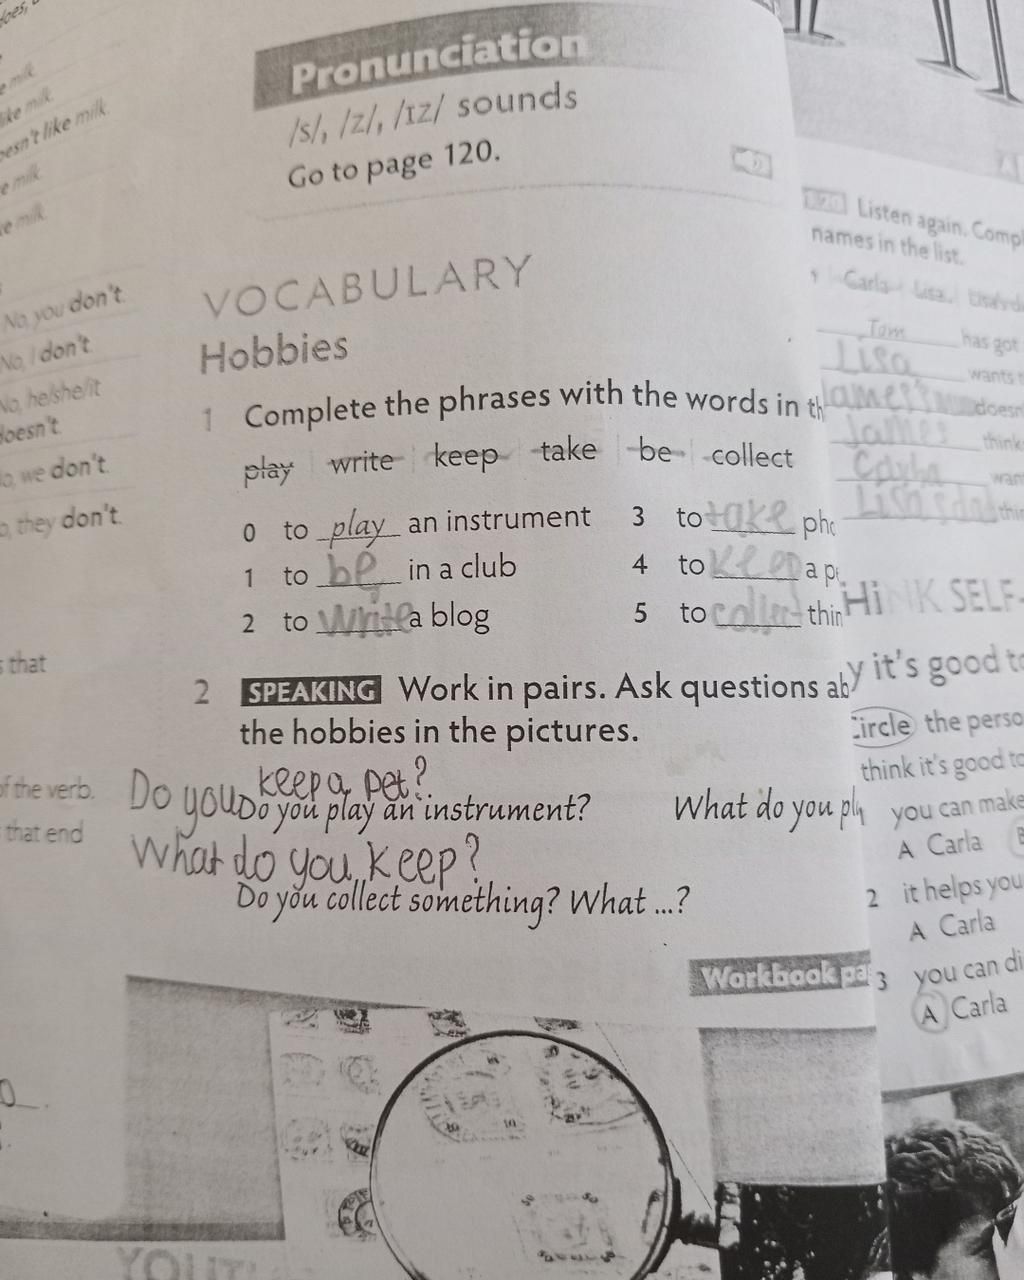 does,
milk.
like milk.
doesn't like milk.
milk.
milk.
No, you don't.
No, I don't.
No, he/she/it
doesn't.
No, we don't.
No, they don't.
s that
of the verb.
that end
Pronunciation
/s/, /z/, /ɪz/ sounds
Go to page 120.
VOCABULARY
Hobbies
1 Complete the phrases with the words in th
play write keep take be collect
0 to play an instrument
1 to be in a club
2 to write a blog
3 to take pho
4 to keep a pe
5 to collect thin
2 SPEAKING Work in pairs. Ask questions ab
the hobbies in the pictures.
Do you keep a pet?
Do you play an instrument? What do you pl
What do you keep?
Do you collect something? What ...?
Workbook pa
Listen again. Compl
names in the list.
Carla Lisa
Tom has got
Lisa wants t
doesn
James think
want
thin
THINK SELF-
y it's good to
Circle the perso
think it's good to
you can make
A Carla B
2 it helps you
A Carla
3 you can di
A Carla